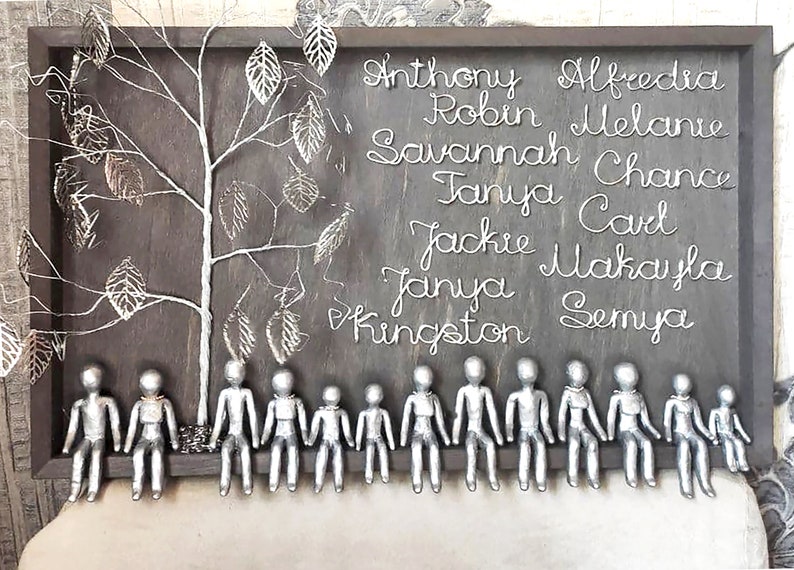 Anthony
Robin
Savannah
Tanya
Jackie
Tanya
Kingston
Alfredia
Melanie
Chance
Carl
Makayla
Semya